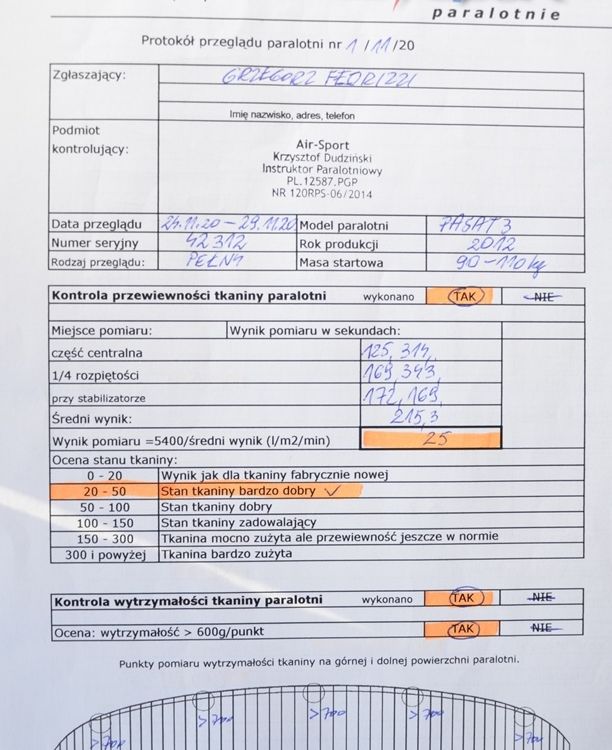 paralotnie
Protokół przeglądu paralotni nr 1/11/20
Zgłaszający: GRZEGORZ FEDRIZZI
Imię nazwisko, adres, telefon
Podmiot
kontrolujący:
Air-Sport
Krzysztof Dudziński
Instruktor Paralotniowy
PL.12587.PGP
NR 120RPS-06/2014
Data przeglądu 24.11.20 - 29.11.20 Model paralotni PASAT 3
Numer seryjny 42312 Rok produkcji 2012
Rodzaj przeglądu: PEŁNY Masa startowa 90-110 kg
Kontrola przewiewności tkaniny paralotni wykonano TAK NIE
Miejsce pomiaru: Wynik pomiaru w sekundach:
część centralna 125, 314,
1/4 rozpiętości 169, 343,
przy stabilizatorze 172, 169,
Średni wynik: 215,3
Wynik pomiaru =5400/średni wynik (l/m2/min) 25
Ocena stanu tkaniny:
0 - 20 Wynik jak dla tkaniny fabrycznie nowej
20 - 50 Stan tkaniny bardzo dobry ✓
50 - 100 Stan tkaniny dobry
100 - 150 Stan tkaniny zadowalający
150 - 300 Tkanina mocno zużyta ale przewiewność jeszcze w normie
300 i powyżej Tkanina bardzo zużyta
Kontrola wytrzymałości tkaniny paralotni wykonano TAK NIE
Ocena: wytrzymałość > 600g/punkt TAK NIE
Punkty pomiaru wytrzymałości tkaniny na górnej i dolnej powierzchni paralotni.
>700 >700 >700 >700 >700